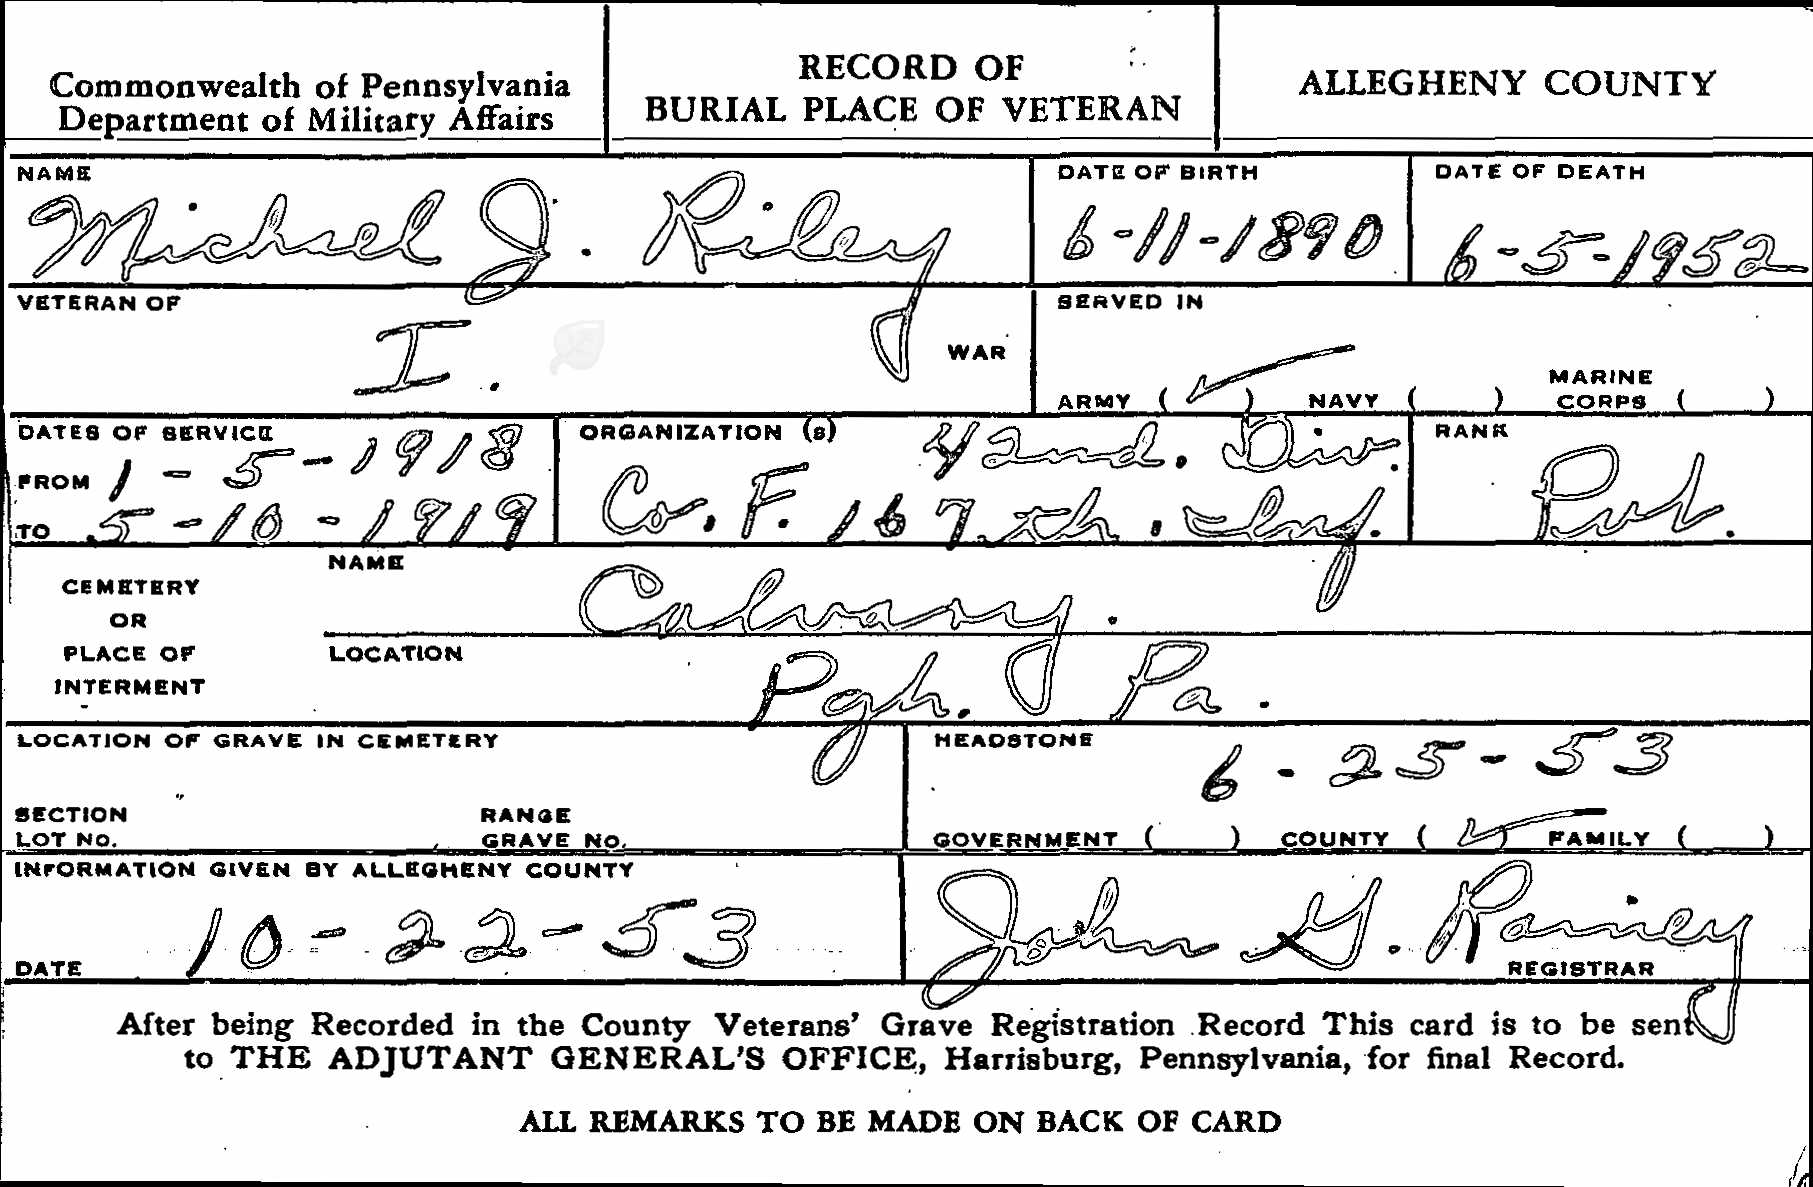 Commonwealth of Pennsylvania
Department of Military Affairs
RECORD OF
BURIAL PLACE OF VETERAN
ALLEGHENY COUNTY
NAME
Michael J. Riley
DATE OF BIRTH
6-11-1890
DATE OF DEATH
6-5-1952
VETERAN OF
I.
WAR
SERVED IN
ARMY (✓) NAVY ( ) MARINE CORPS ( )
DATES OF SERVICE
FROM 1-5-1918
TO 5-10-1919
ORGANIZATION (s) 42nd. Div.
Co. F. 167.th. Inf.
RANK
Pvt.
CEMETERY
OR
PLACE OF
INTERMENT
NAME
Calvary.
LOCATION
Pgh. Pa.
LOCATION OF GRAVE IN CEMETERY
SECTION RANGE
LOT NO. GRAVE NO.
HEADSTONE
6-25-53
GOVERNMENT ( ) COUNTY (✓) FAMILY ( )
INFORMATION GIVEN BY ALLEGHENY COUNTY
DATE 10-22-53
John G. Rainey
REGISTRAR
After being Recorded in the County Veterans' Grave Registration Record This card is to be sent
to THE ADJUTANT GENERAL'S OFFICE, Harrisburg, Pennsylvania, for final Record.
ALL REMARKS TO BE MADE ON BACK OF CARD